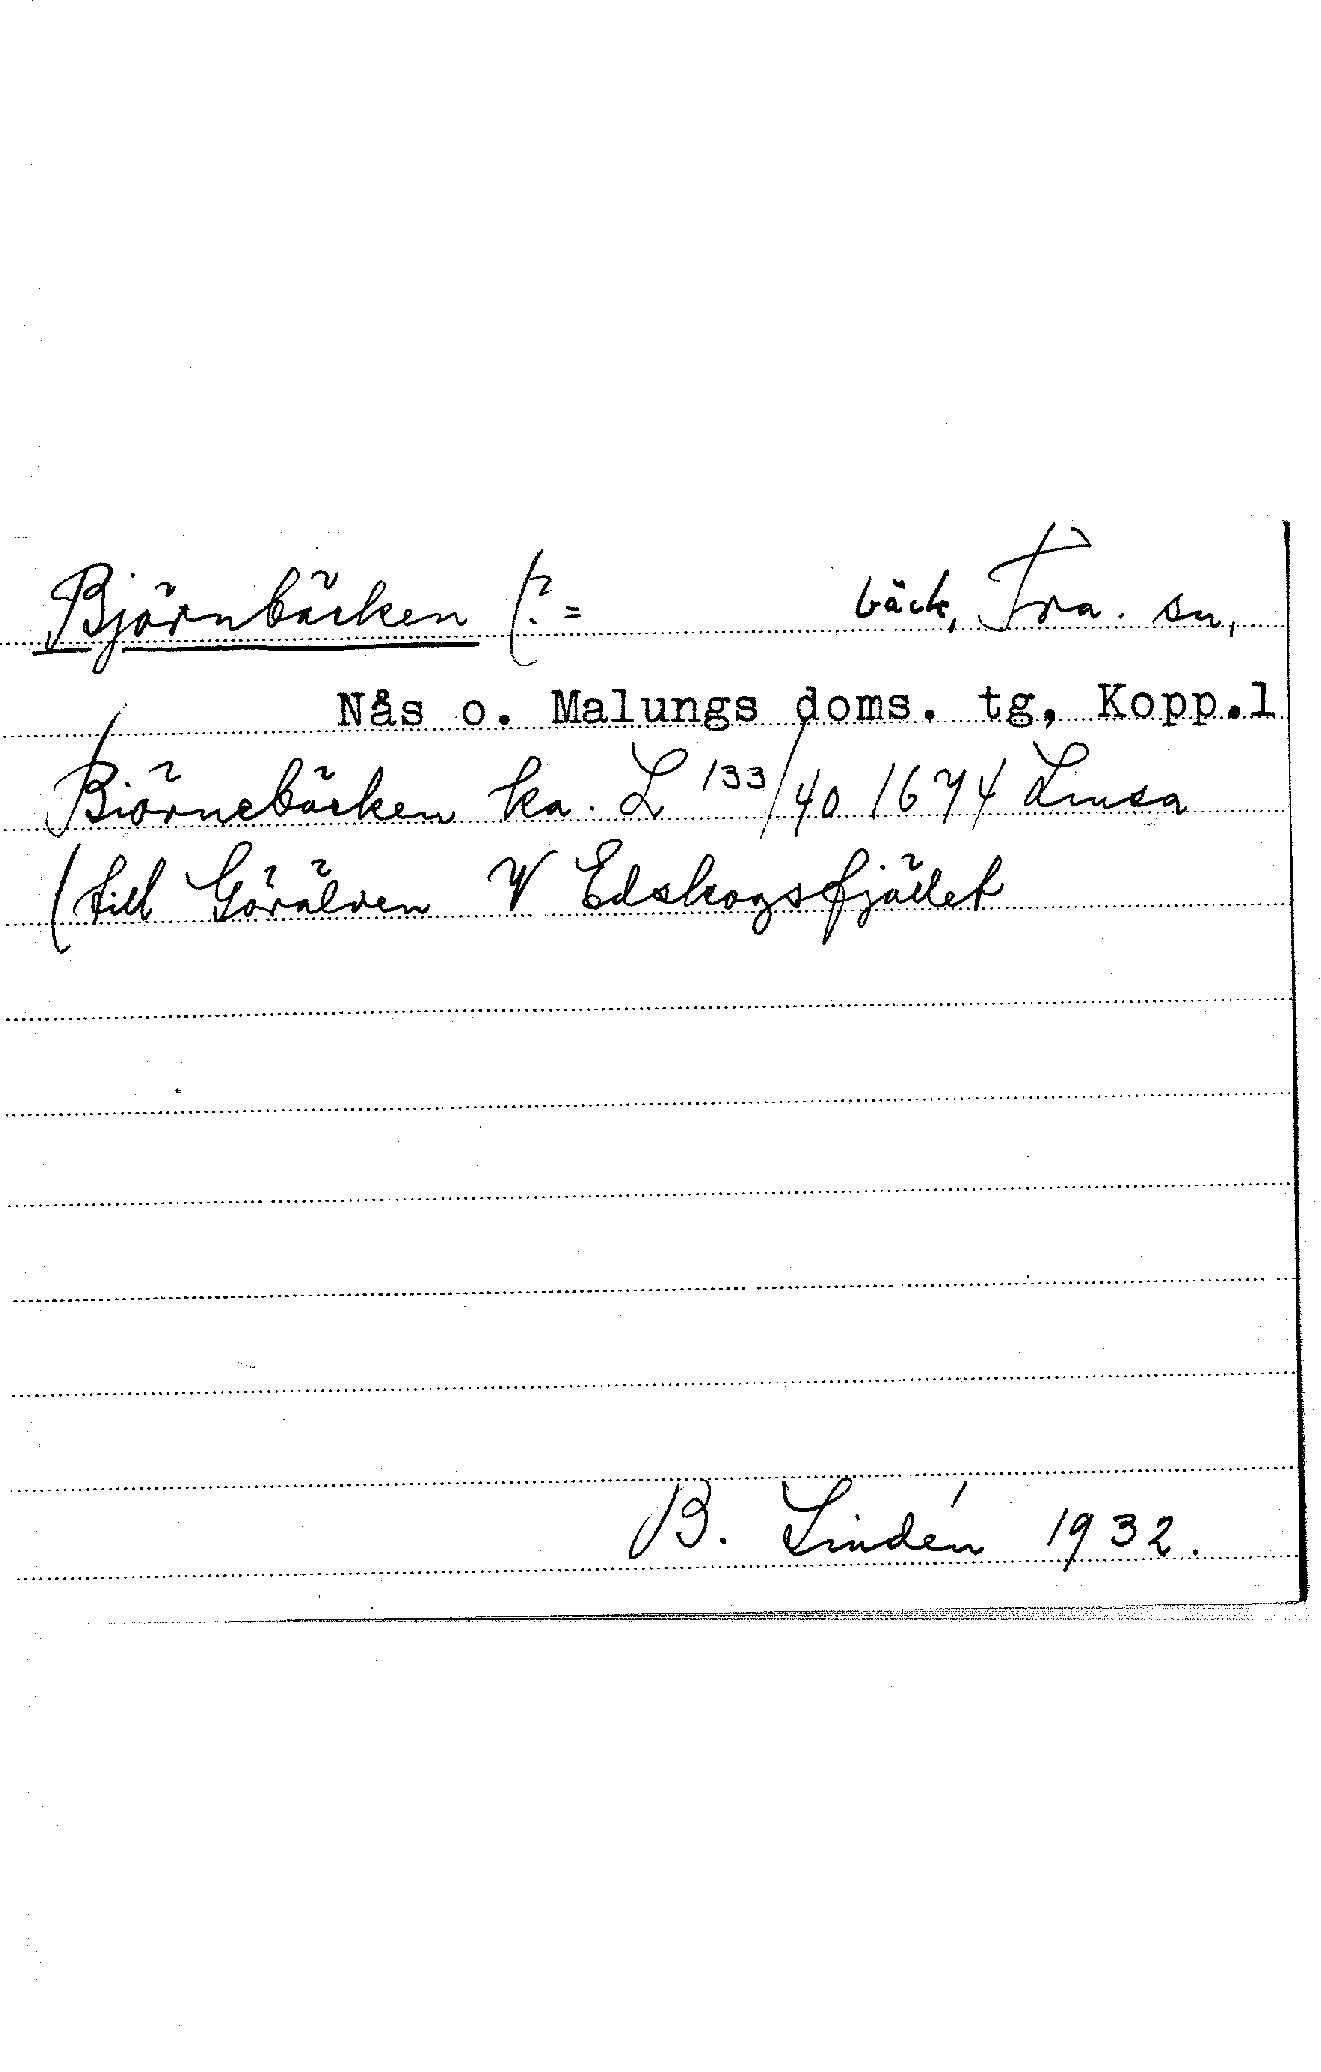 Björnbäcken (?= bäck, Tra. sn,
Nås o. Malungs doms. tg, Kopp.l
Biörnebäcken ka. L 133/40 1674 Limsa
(till Görälven V Edskogsfjället
B. Lindén 1932.